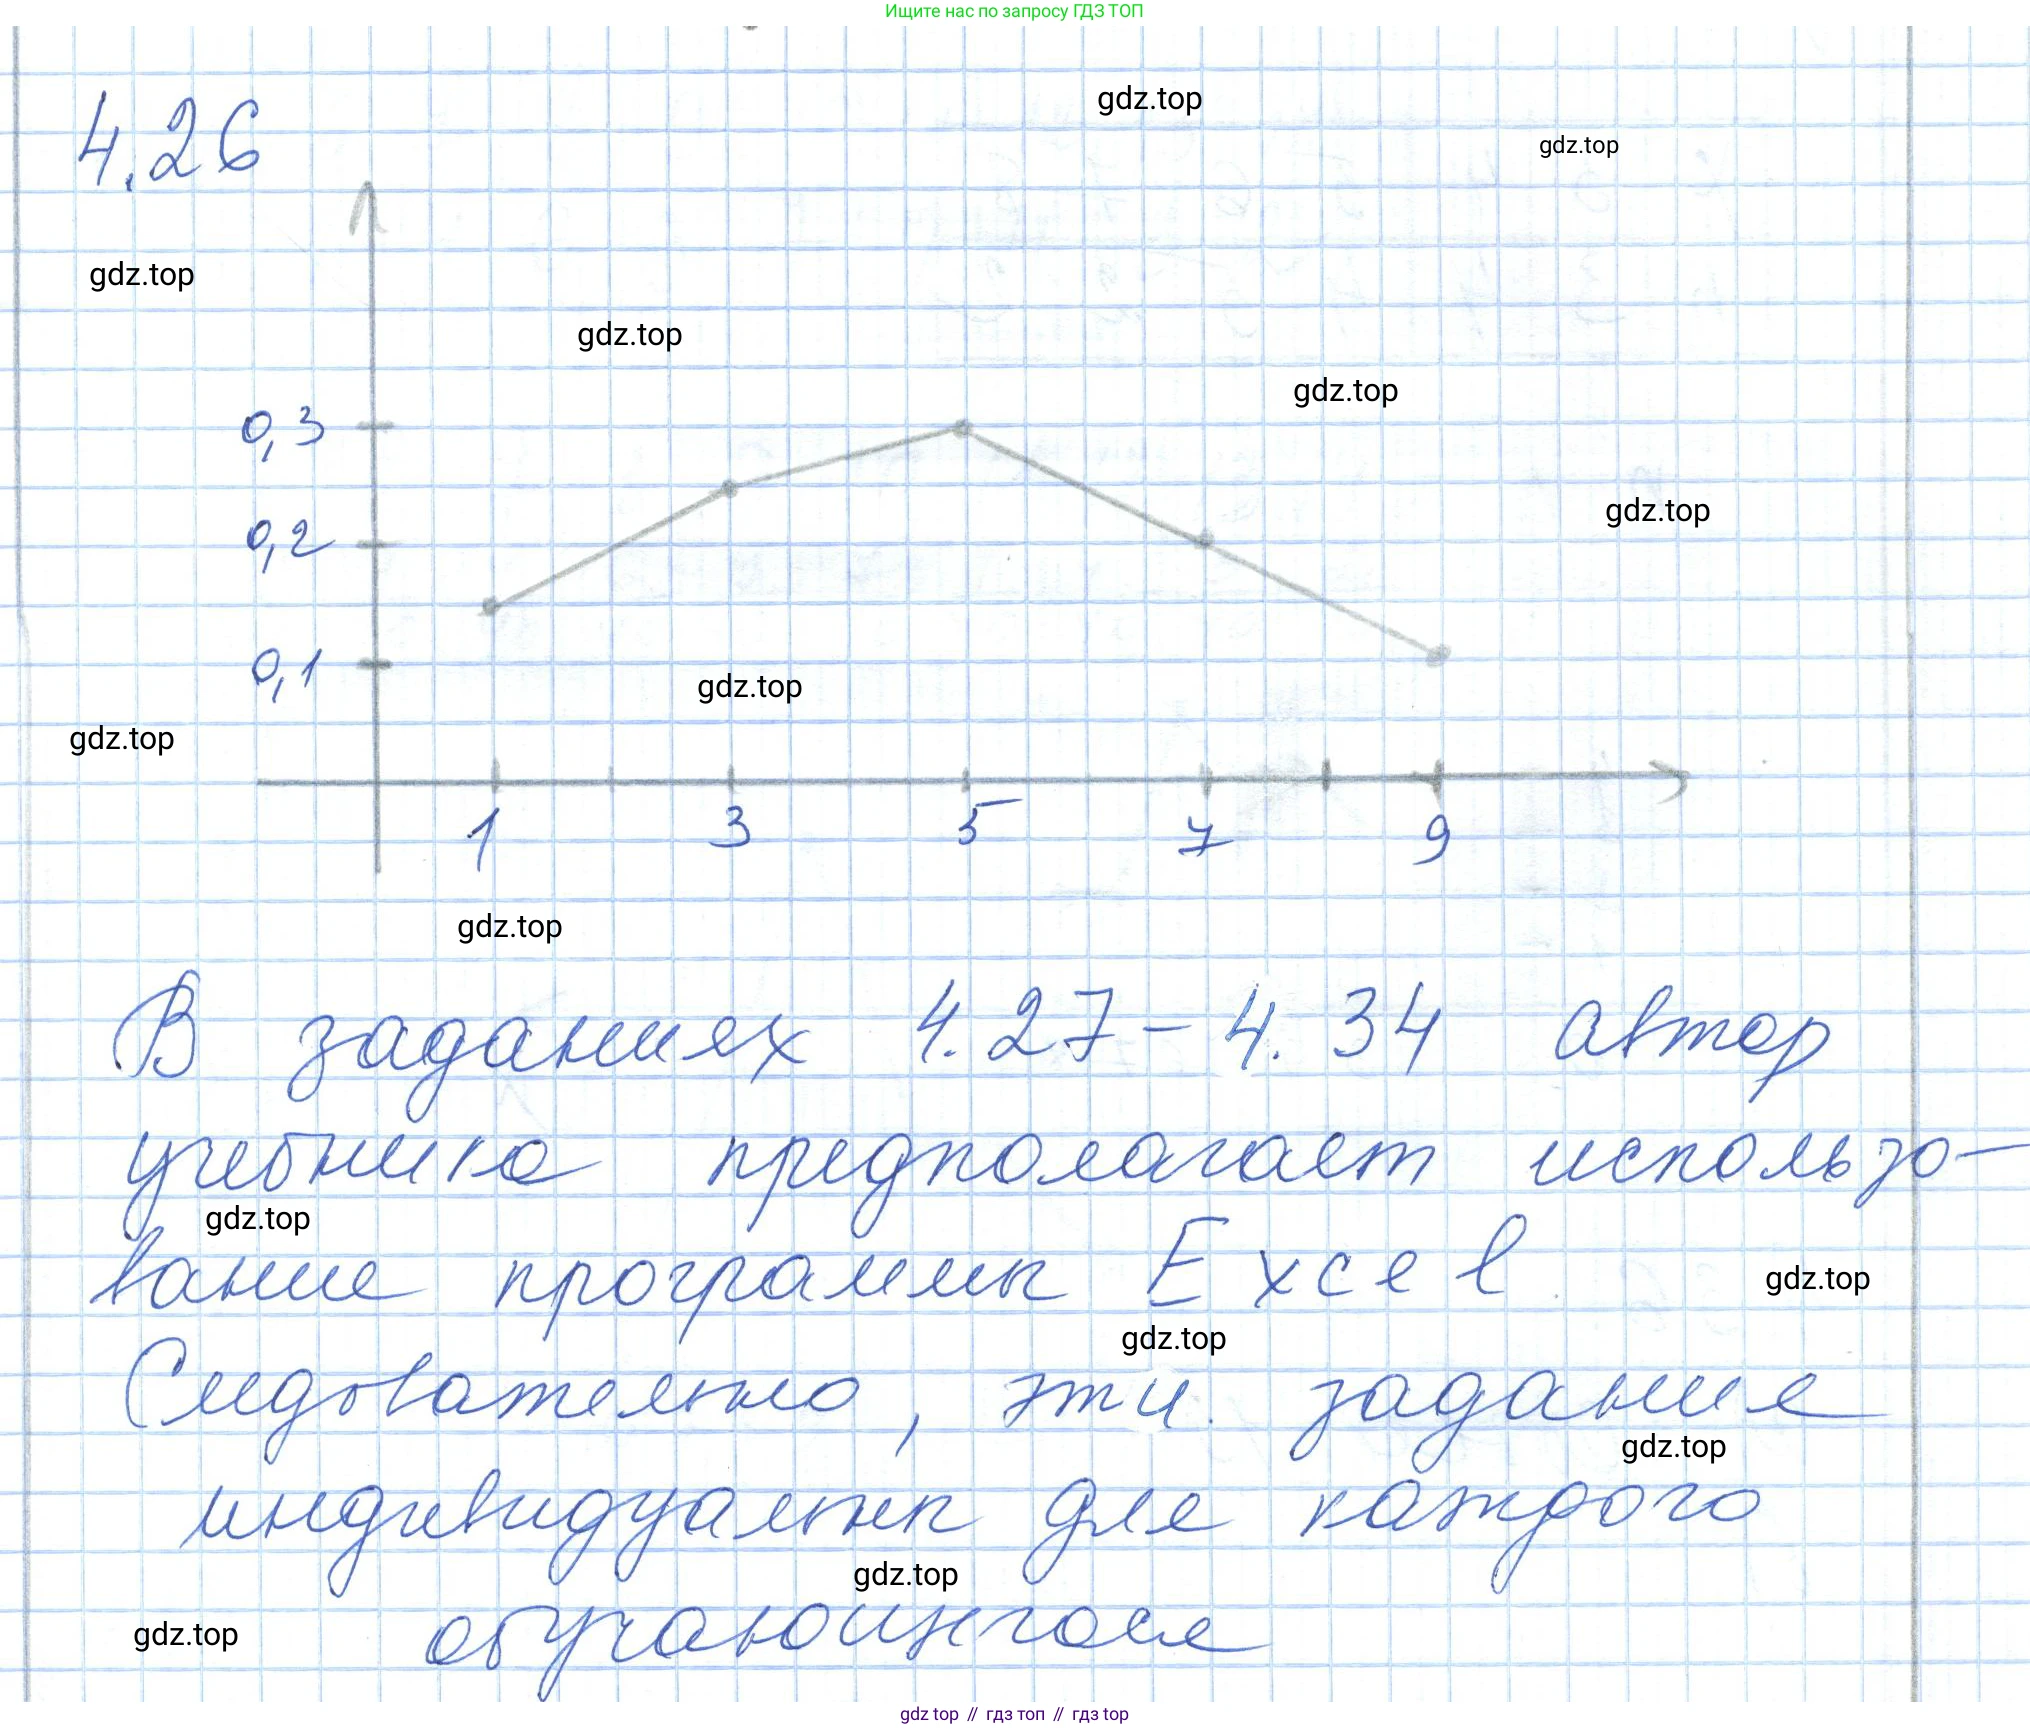 Ищите нас по запросу ГДЗ ТОП
4.26
gdz.top
gdz.top
gdz.top
gdz.top
gdz.top
0,3
gdz.top
0,2
0,1
gdz.top
gdz.top
1 3 5 7 9
gdz.top
В заданиях 4.27-4.34 автор
учебника предполагает использо-
gdz.top
вание программы Excel
gdz.top
gdz.top
Следовательно, эти задания
gdz.top
индивидуальны для каждого
gdz.top
обучающегося
gdz.top
gdz top // гдз топ // гдз top